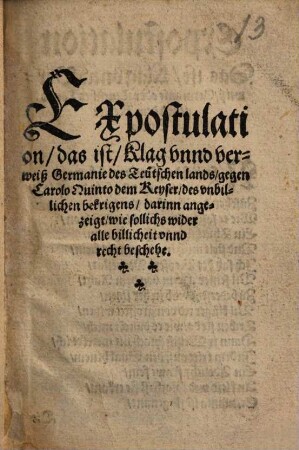 13
EXpostulati
on/das ist/Klag vnnd ver-
weiß Germanie des Teütschen lands/gegen
Carolo Quinto dem Keyser/des vnbil-
lichen bekrigens/darinn ange-
zeigt/wie sollichs wider
alle billicheit vnnd
recht beschehe.